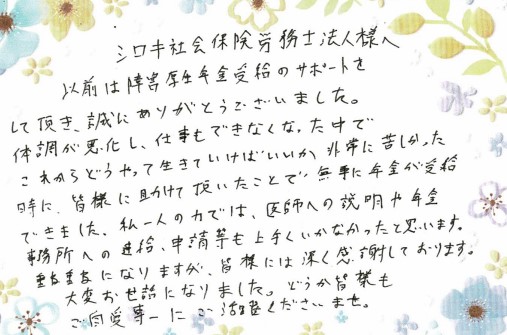 シロキ社会保険労務士法人様へ
以前は障害厚生年金受給のサポートを
して頂き、誠にありがとうございました。
体調が悪化し、仕事もできなくなった中で
これからどうやって生きていけばいいか、非常に苦しかった
時に、皆様に助けて頂いたことで無事に年金が受給
できました。私一人の力では、医師への説明や年金
事務所への連絡、申請等も上手くいかなかったと思います。
重ね重ねになりますが、皆様には深く感謝しております。
大変お世話になりました。どうか皆様も
ご自愛専一にご活躍くださいませ。